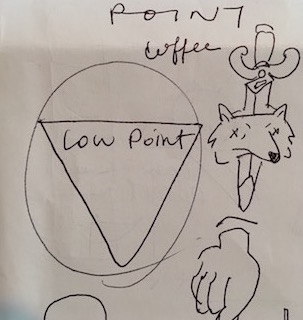 POINT
Coffee
Low Point